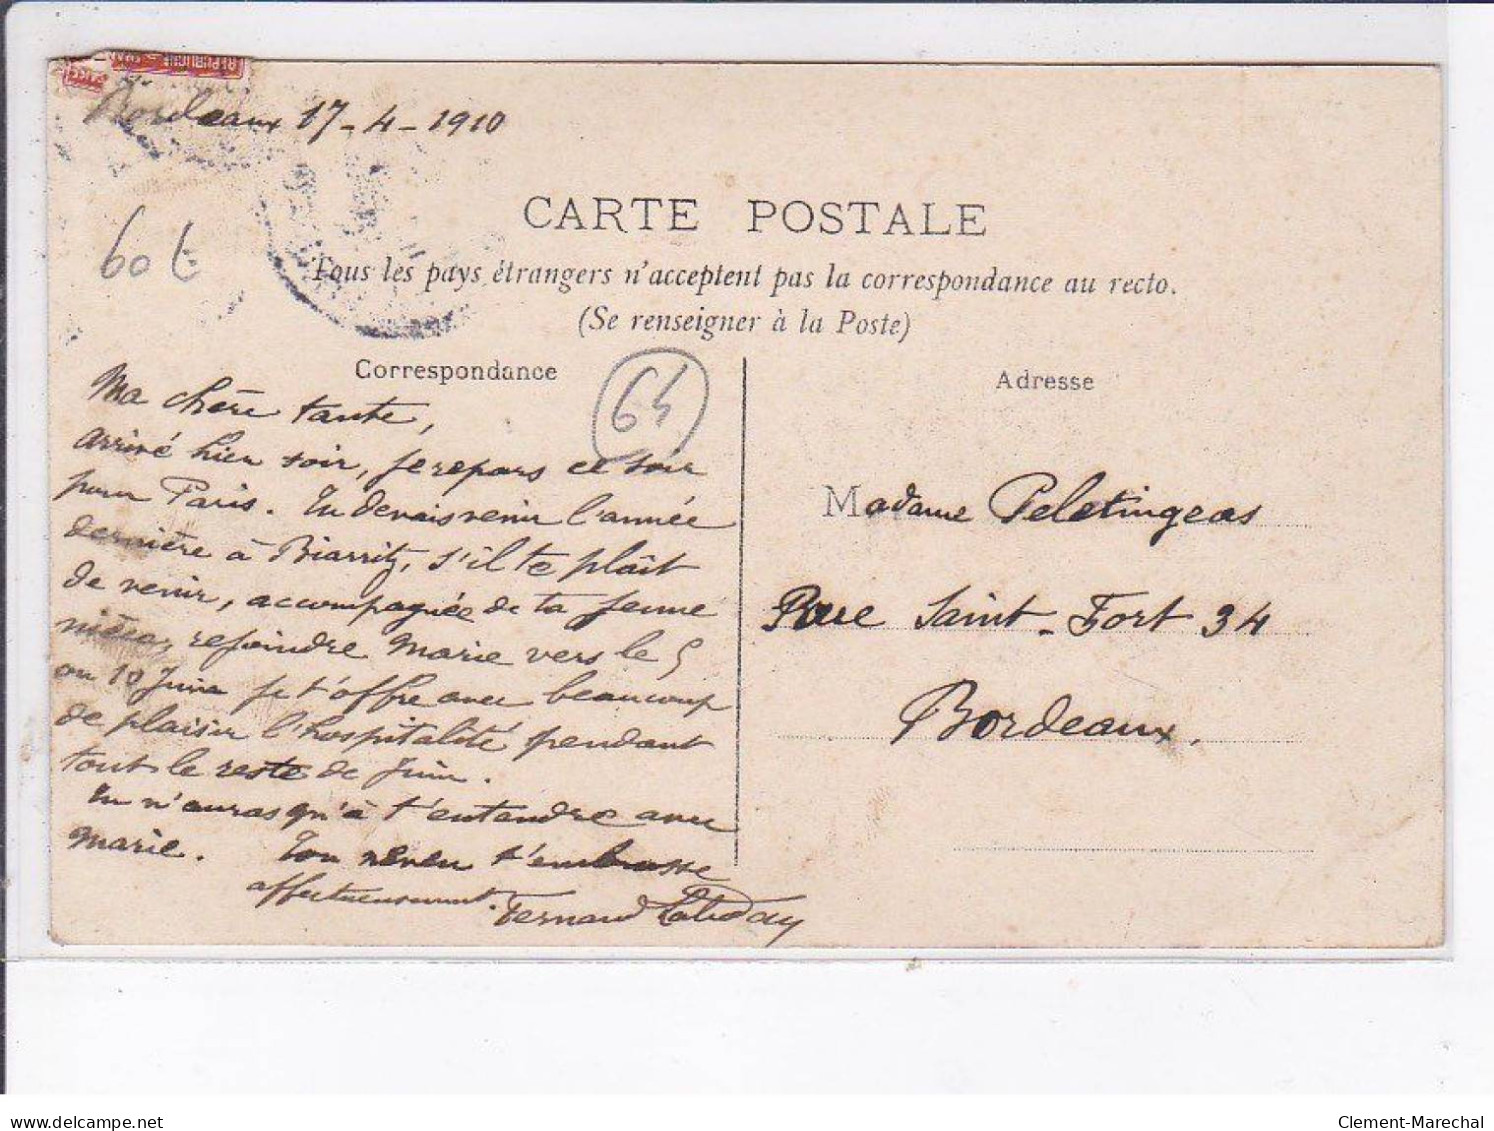 Bordeaux 17-4-1910
60 t
CARTE POSTALE
Tous les pays étrangers n'acceptent pas la correspondance au recto.
(Se renseigner à la Poste)
Correspondance
64
Ma chère tante,
arrivé hier soir, je repars ce soir
pour Paris. Tu devais venir l'année
dernière à Biarritz, s'il te plaît
de venir, accompagnée de ta jeune
nièce, rejoindre Marie vers le 5
ou 10 Juin je t'offre avec beaucoup
de plaisir l'hospitalité pendant
tout le reste de Juin.
Tu n'auras qu'à t'entendre avec
Marie. Ton neveu t'embrasse
affectueusement. Fernand
Adresse
Madame Peletingeas
Rue Saint-Fort 34
Bordeaux.
Clement-Marechal
delcampe.net